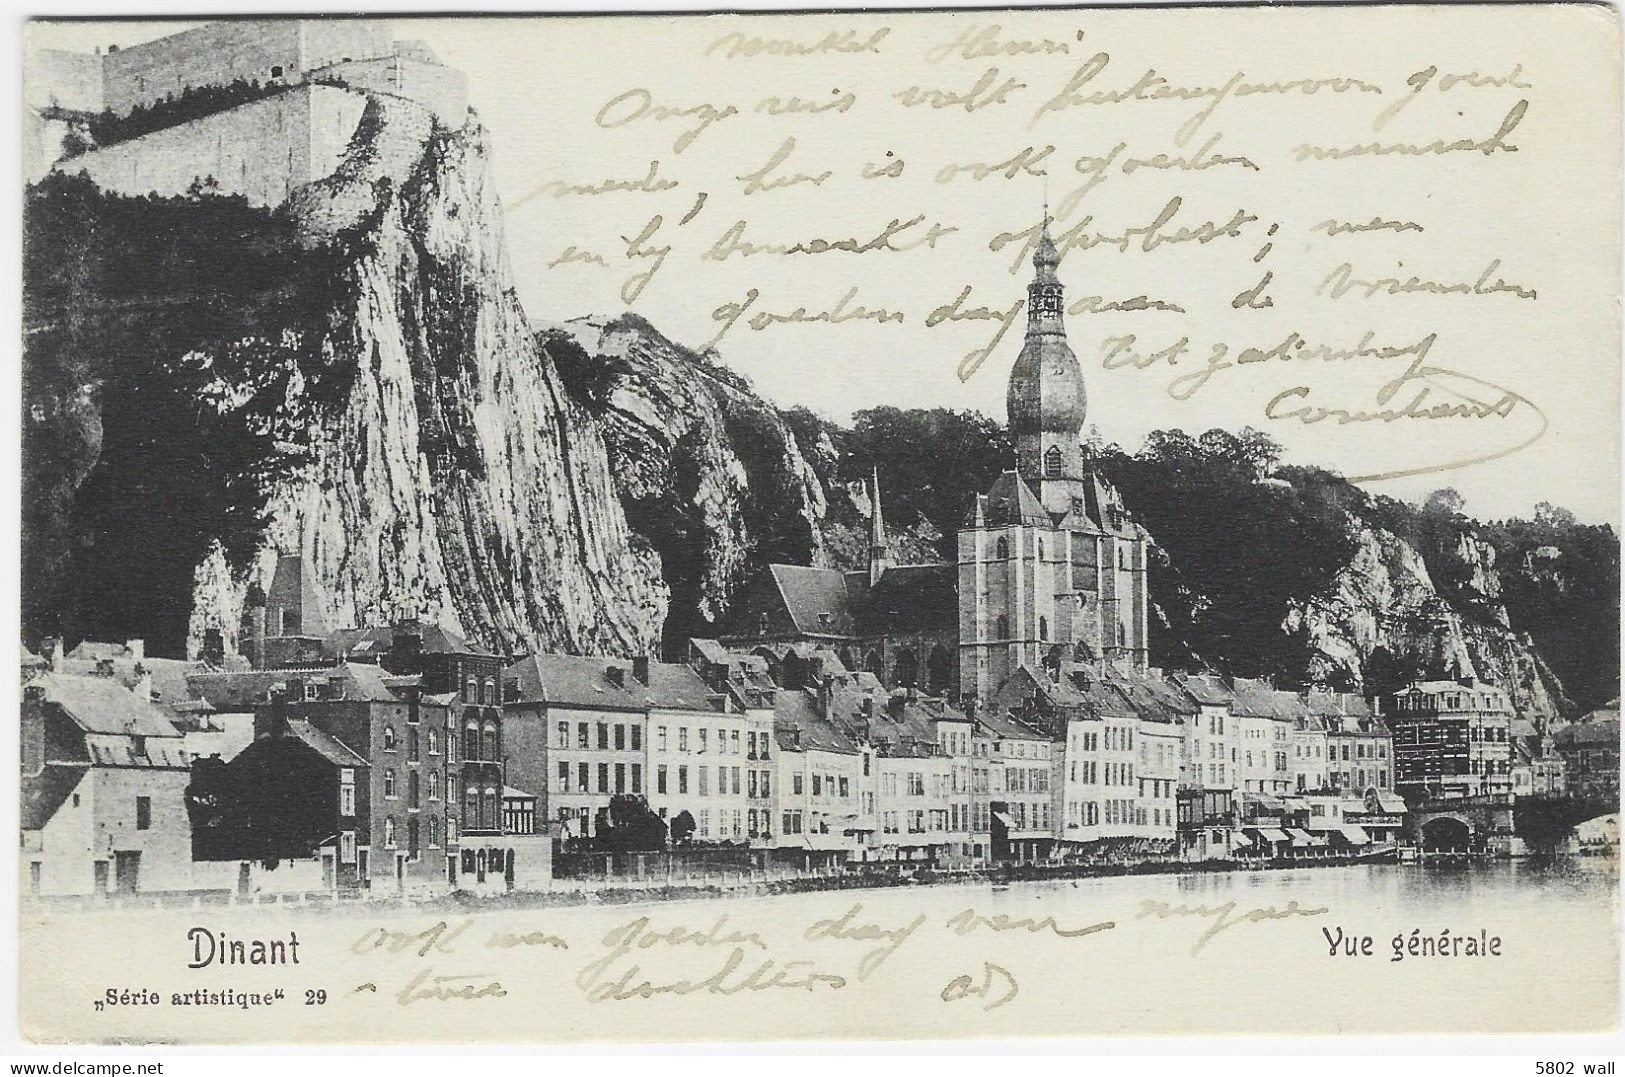 nonkel Henri
Onze reis valt buitengewoon goed
mede, hier is ook goeden
en hij smaakt opperbest; men
goeden dag aan de vrienden
Tot zaterdag
Constant
Dinant
Vue générale
„Série artistique“ 29
ook nen goeden dag van mijne
twee dochters
5802 wall